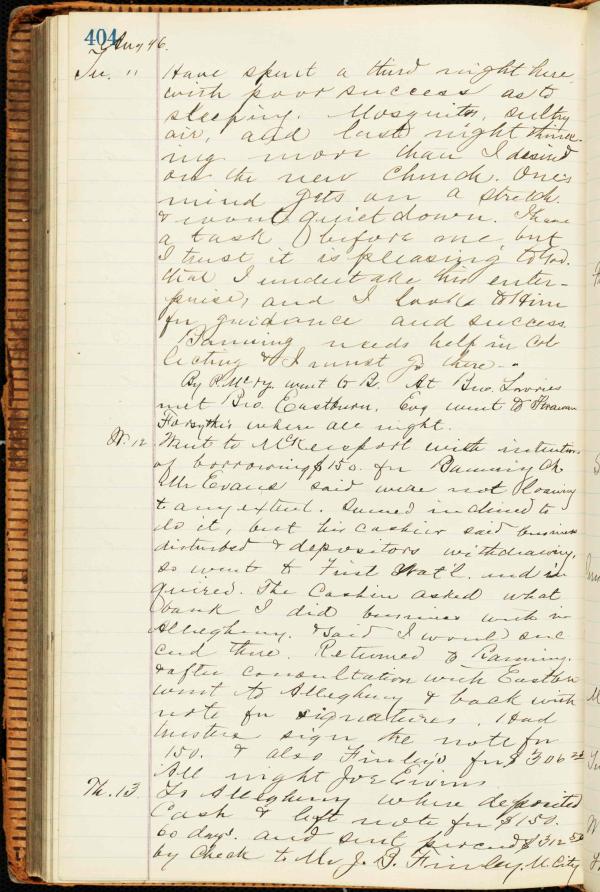 404
Aug 96.
Tu. " Have spent a third night here,
with poor success as to
sleeping. Mosquitos, sultry
air, and last night think-
ing more than I desired
on the new church. One's
mind gets on a stretch
& wont quiet down. I have
a task before me, but
I trust it is pleasing to God.
that I undertake this enter-
prise, and I look to Him
for guidance and success
Banning needs help in col
lecting & I must go there -
By P. McK & Y. went to B. At Bro. Lowries
met Bro. Eastburn. Esq went to
Forsythes where all night.
W. 12 Went to McKeesport with intention
of borrowing $150. for Banning Ch
Mr Evans said were not loaning
to any extent. Seemed inclined to
do it, but his cashier said business
disturbed & depositors withdrawing.
So went to First Nat'l. and in
quired. The Cashier asked what
bank I did business with in
Allegheny. & said I would suc
ceed there. Returned to Banning.
& after consultation with Eastburn
went to Allegheny & back with
note for signatures. Had
trustees sign the note for
150. & also Finley's for $306
All night Joe Ewins
Th. 13 To Allegheny where deposited
Cash & left note for $150.
60 days. and sent $312 50
by Check to Mr J. B. Finley. M. City